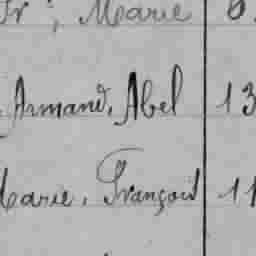 Marie
Armand, Abel 13
Marie, François 11